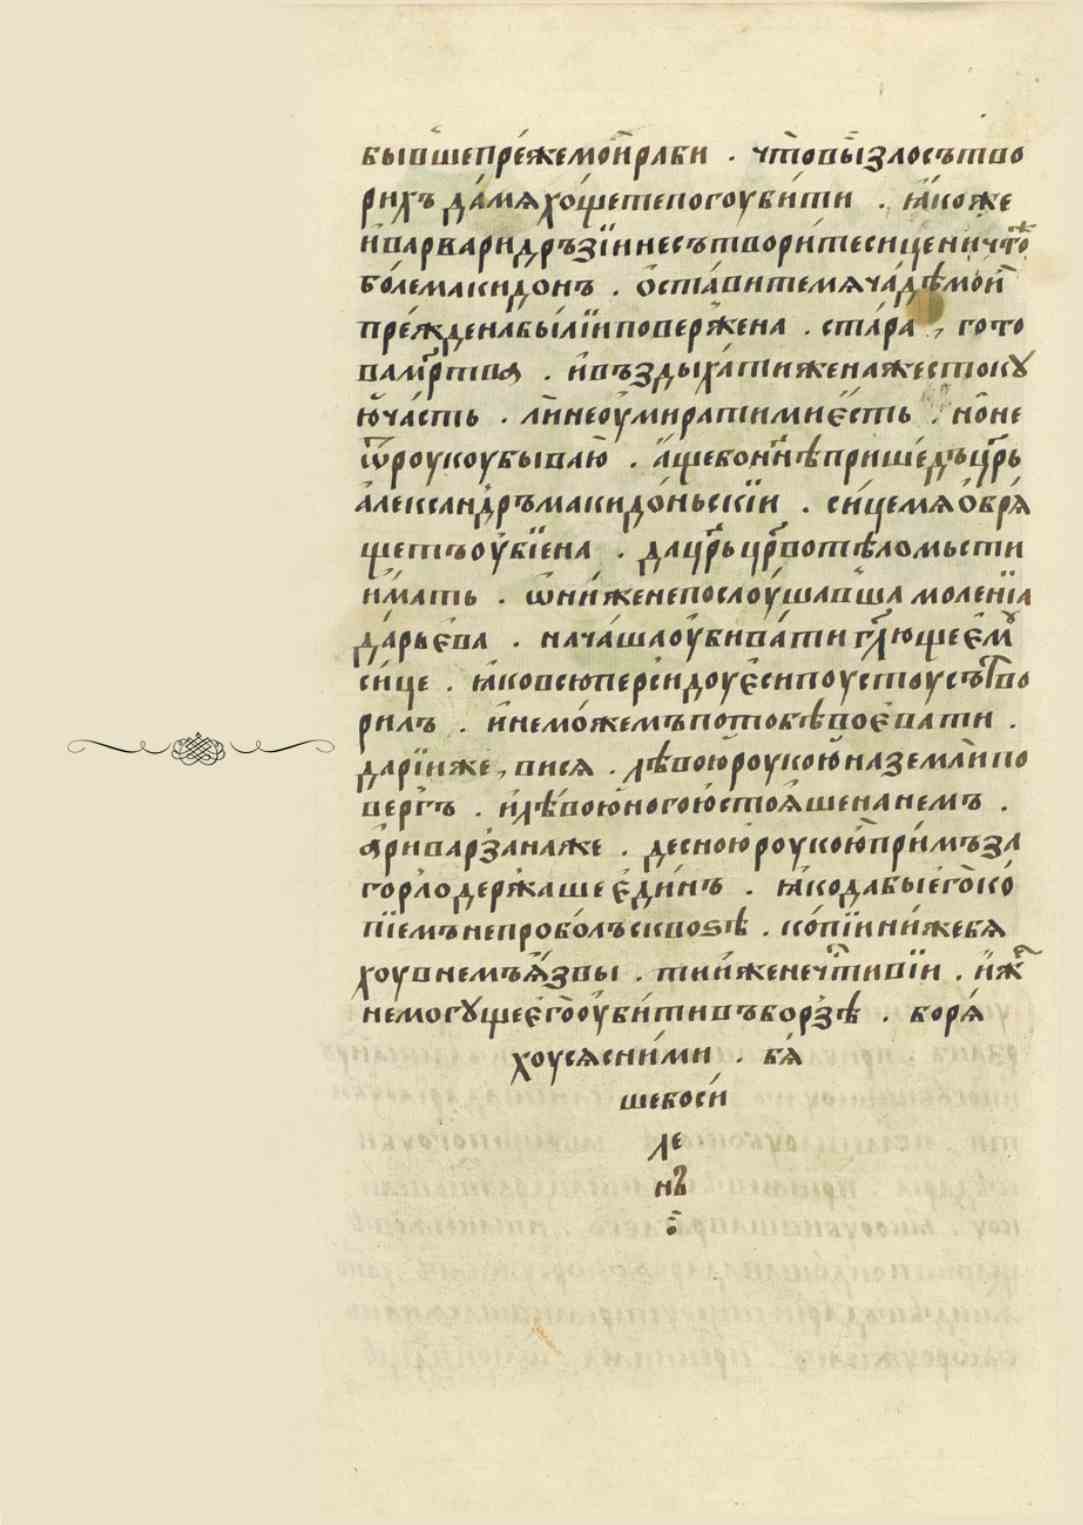 бывшепре́жемоѝраби . что̀вы̀злосътво
рихъ да́мѧхо́щетепогоуби́ти . ꙗ́коже
и҆варвариⷣръзїи́несътвори́тесиценичтоⷤ
бо́лемакидо́нъ . ѡ҆ста́витемѧча́дѣмоѝ
пре́жденабы́лїиповер́жена . ста́ра , гото
вамр҃тва . и҆въздыха́тиженажестокꙋ
ю҆ча́сть . ли̾неоу҆мира́тимиє҆́сть . но̀не
ѿроукоубываю̀ . а҆́щебонн҃ѣприше́дъцр҃ь
а҆леѯа́ндръмакидо́ньскїи . си́цемѧѡ҆брѧ́
щетъоу҆бїе́на . дацр҃ьцр҃вотѣломьсти
и҆́мать . ѡ҆ни́женепослоу́шавша моленїа
да́рьє҆ва . нача́шаоу҆бива́тигл҃ющеє҆мꙋ̀
си́це . ꙗ҆ковсюперсидоує҆сипоустоусътво
рилъ . и҆немо́жемъпотобѣвоє҆вати .
дарїи́же , висѧ . лѣвоюроукоюназемли̾по
вергъ . и҆лѣвоюногоюстоѧ҆шенанемъ .
а҆риварза́наже . десноюроукоюприи́мъза
го́рлодержашеє҆ди́нъ . ꙗ҆кодабыегѡ̀ко
пїемънепробо́лъсквоѕѣ̀ . ко́пїини́жебѧ
хоувнемъѧ҆́звы . тии҆́женечт҃ивїи . и҆́жⷷ
немогꙋщеє҆го̀оу҆би́тивъборзѣ̀ . борѧ́
хоусѧсни́ми . бѧ́
шебоси́
ле
нъ